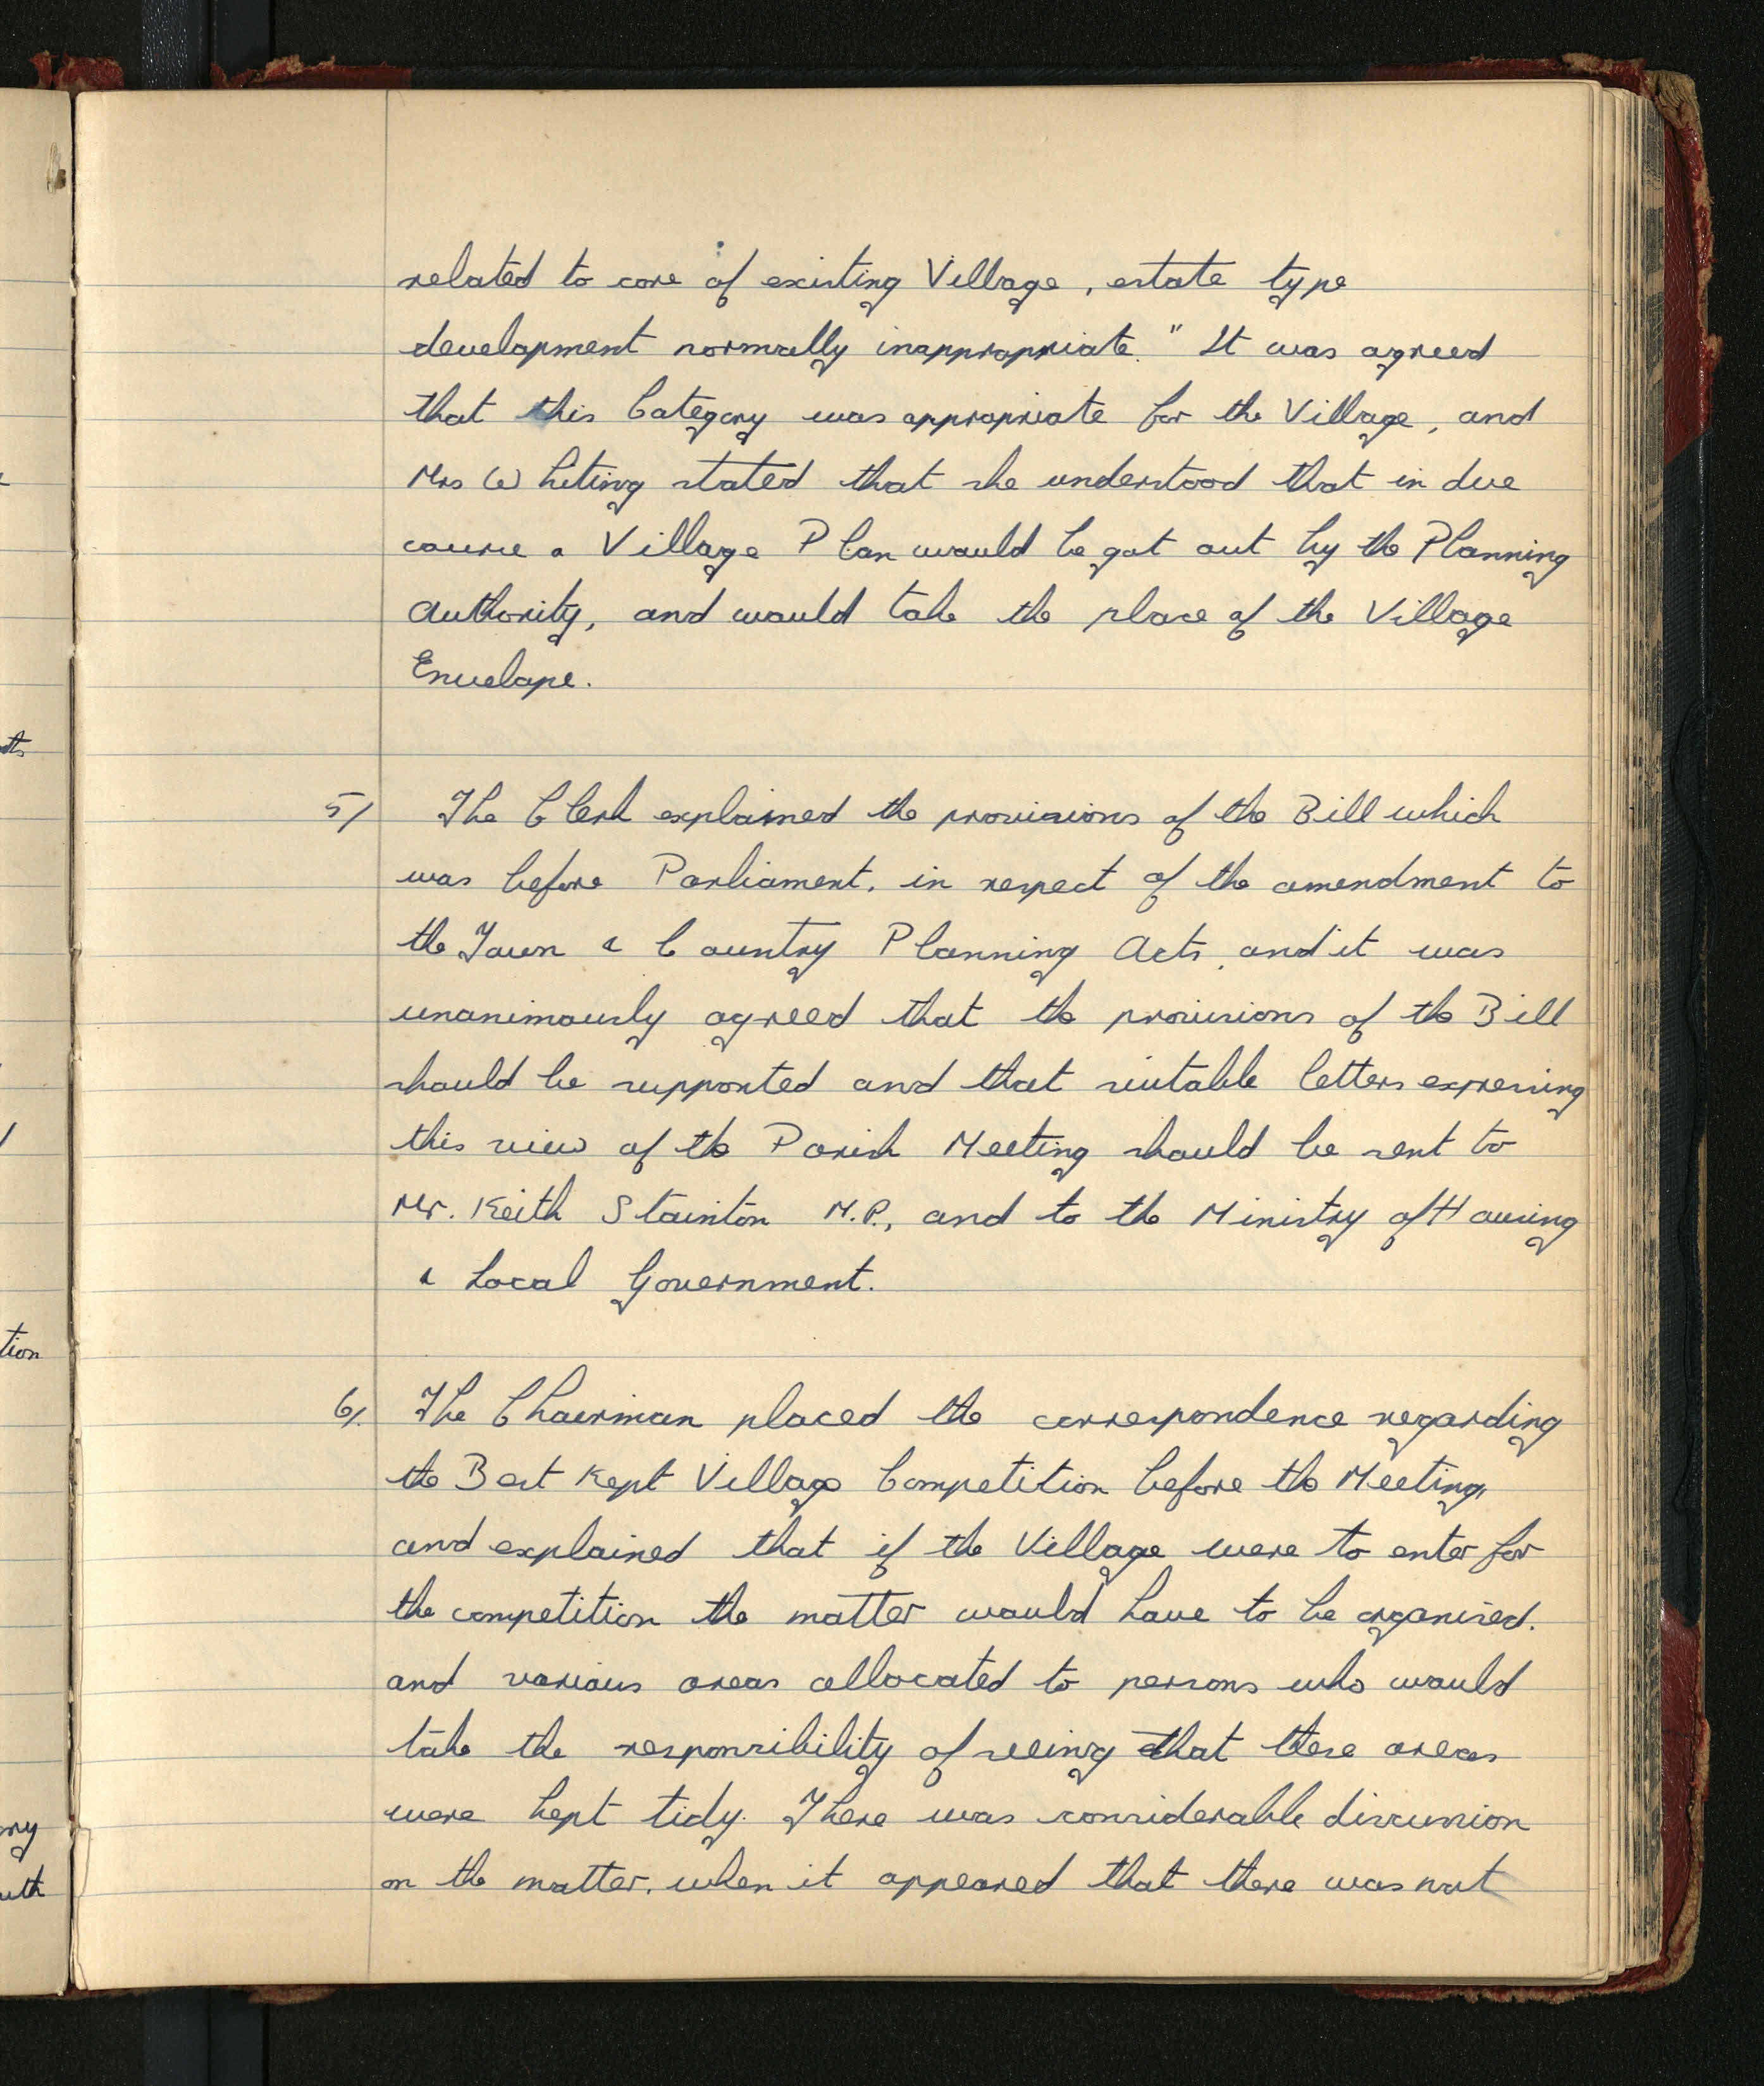 related to core of existing Village, estate type
development normally inappropriate." It was agreed
that this Category was appropriate for the Village, and
Mrs Whiting stated that she understood that in due
course a Village Plan would be got out by the Planning
Authority, and would take the place of the Village
Envelope.
5/ The Clerk explained the provisions of the Bill which
was before Parliament, in respect of the amendment to
the Town & Country Planning Acts, and it was
unanimously agreed that the provisions of the Bill
should be supported and that suitable letters expressing
this view of the Parish Meeting should be sent to
Mr. Keith Stainton M.P., and to the Ministry of Housing
& Local Government.
6/. The Chairman placed the correspondence regarding
the Best Kept Village Competition before the Meeting,
and explained that if the Village were to enter for
the competition the matter would have to be organised.
and various areas allocated to persons who would
take the responsibility of seeing that these areas
were kept tidy. There was considerable discussion
on the matter, when it appeared that there was not